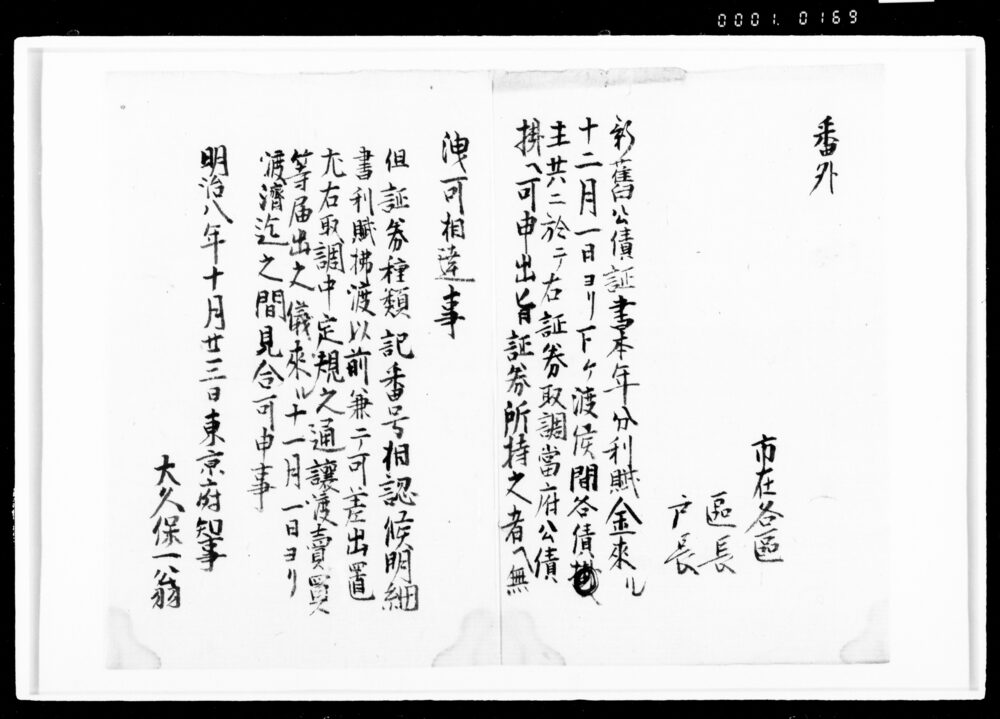 0001.0169
番外
市在各區
區長
戸長
新舊公債証書本年分利賦金來ル
十二月一日ヨリ下ケ渡侯間各債
主共ニ於テ右証券取調當府公債
掛ヘ可申出旨証券所持之者ヘ無
洩可相達事
但証券種類記番号相認候明細
書利賦拂渡以前兼テ可差出置
尤右取調中定規之通讓渡賣買
等届出之儀來ル十一月一日ヨリ
渡濟迄之間見合可申事
明治八年十月廿三日東京府知事
大久保一翁